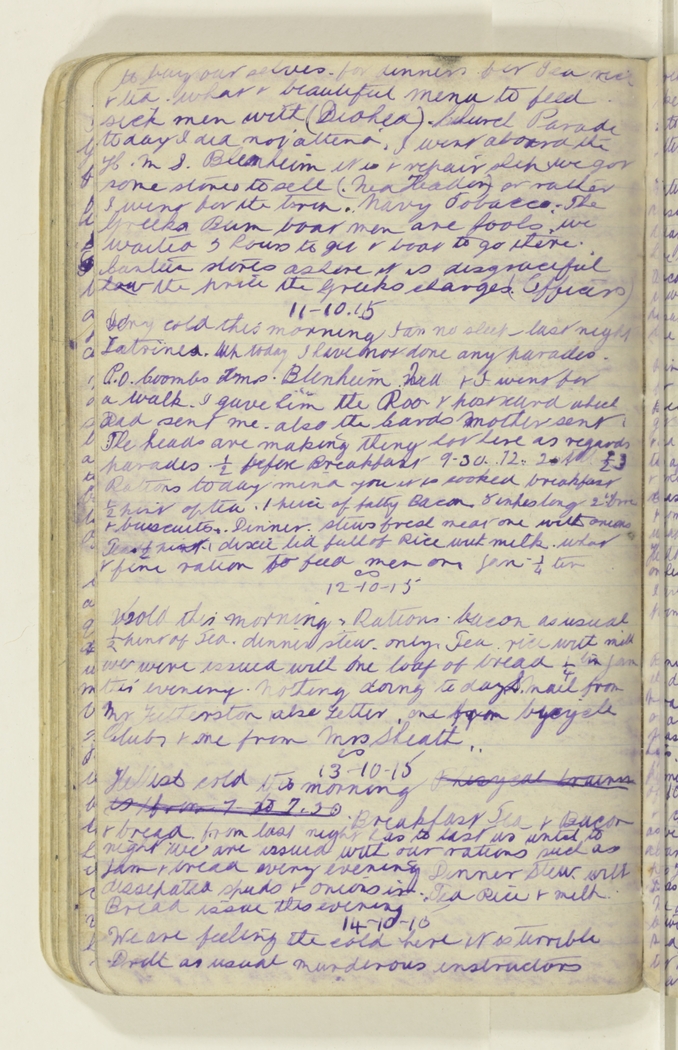 to buy our selves. for dinners. for Tea rice
& tea. what a beautiful menu to feed
sick men with (Diahea). Church Parade
today I did not attend, I went aboard the
H.M.S. Blenheim it is a repair ship we got
some stores to sell (Ned Headin) or rather
I went for the term. Navy Tobacco. The
Greeks Bum boat men are fools. we
waited 2 hours to get a boat to go there.
Canteen stores ashore it is disgraceful
the price the Greeks charges (Officers)
11-10.15
Very cold this morning I an no sleep last night
Latrines. up today I have not done any parades.
P.O. Coombs Hms. Blenheim Ned & I went for
a walk. I gave him the Roo & postcard which
Dad sent me. also the cards Mother sent.
The heads are making things hot here as regards
parades. ½ before Breakfast 9-30. 12. 2
Rations today mind you it is cooked breakfast
½ pint of tea. 1 piece of fatty Bacon 8 inches long 2
& buiscuits. Dinner. stew fresh meat one with onions
Tea ½ pint. 1 dixie lid full of Rice with milk. what
a fine ration to feed men on. Jam - ¼ tin
12-10-15
Cold this morning. Rations. bacon as usual
½ pint of Tea. dinner stew. only. Tea rice with milk
we were issued with one loaf of bread ¼ tin Jam
this evening. Nothing doing to day. mail from
Mr Fetterston also Letter, one from bycycle
Clubs & one from Mrs Sheath,,
13-10-15
Hellish cold this morning Physical trainss
is from 7- to 7.30. Breakfast Tea & Bacon
& bread. from last night has to last us until to
night we are issued with our rations such as
Jam & bread every evening Dinner Stew with
dissepated spuds & onions in. Tea Rice & milk.
Bread issue this evening
14-10-15
We are feeling the cold here it is terrible
Drill as usual murderous instructors